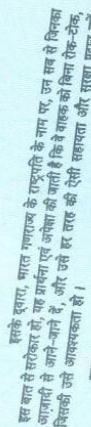 इसके द्वारा, भारत गणराज्य के राष्ट्रपति के नाम पर, उन सब से जिनका
इस बात से सरोकार हो, यह प्रार्थना एवं अपेक्षा की जाती है कि वे वाहक को बिना रोक-टोक,
आज़ादी से आने-जाने दें, और उसे हर तरह की ऐसी सहायता और सुरक्षा प्रदान करें
जिसकी उसे आवश्यकता हो ।